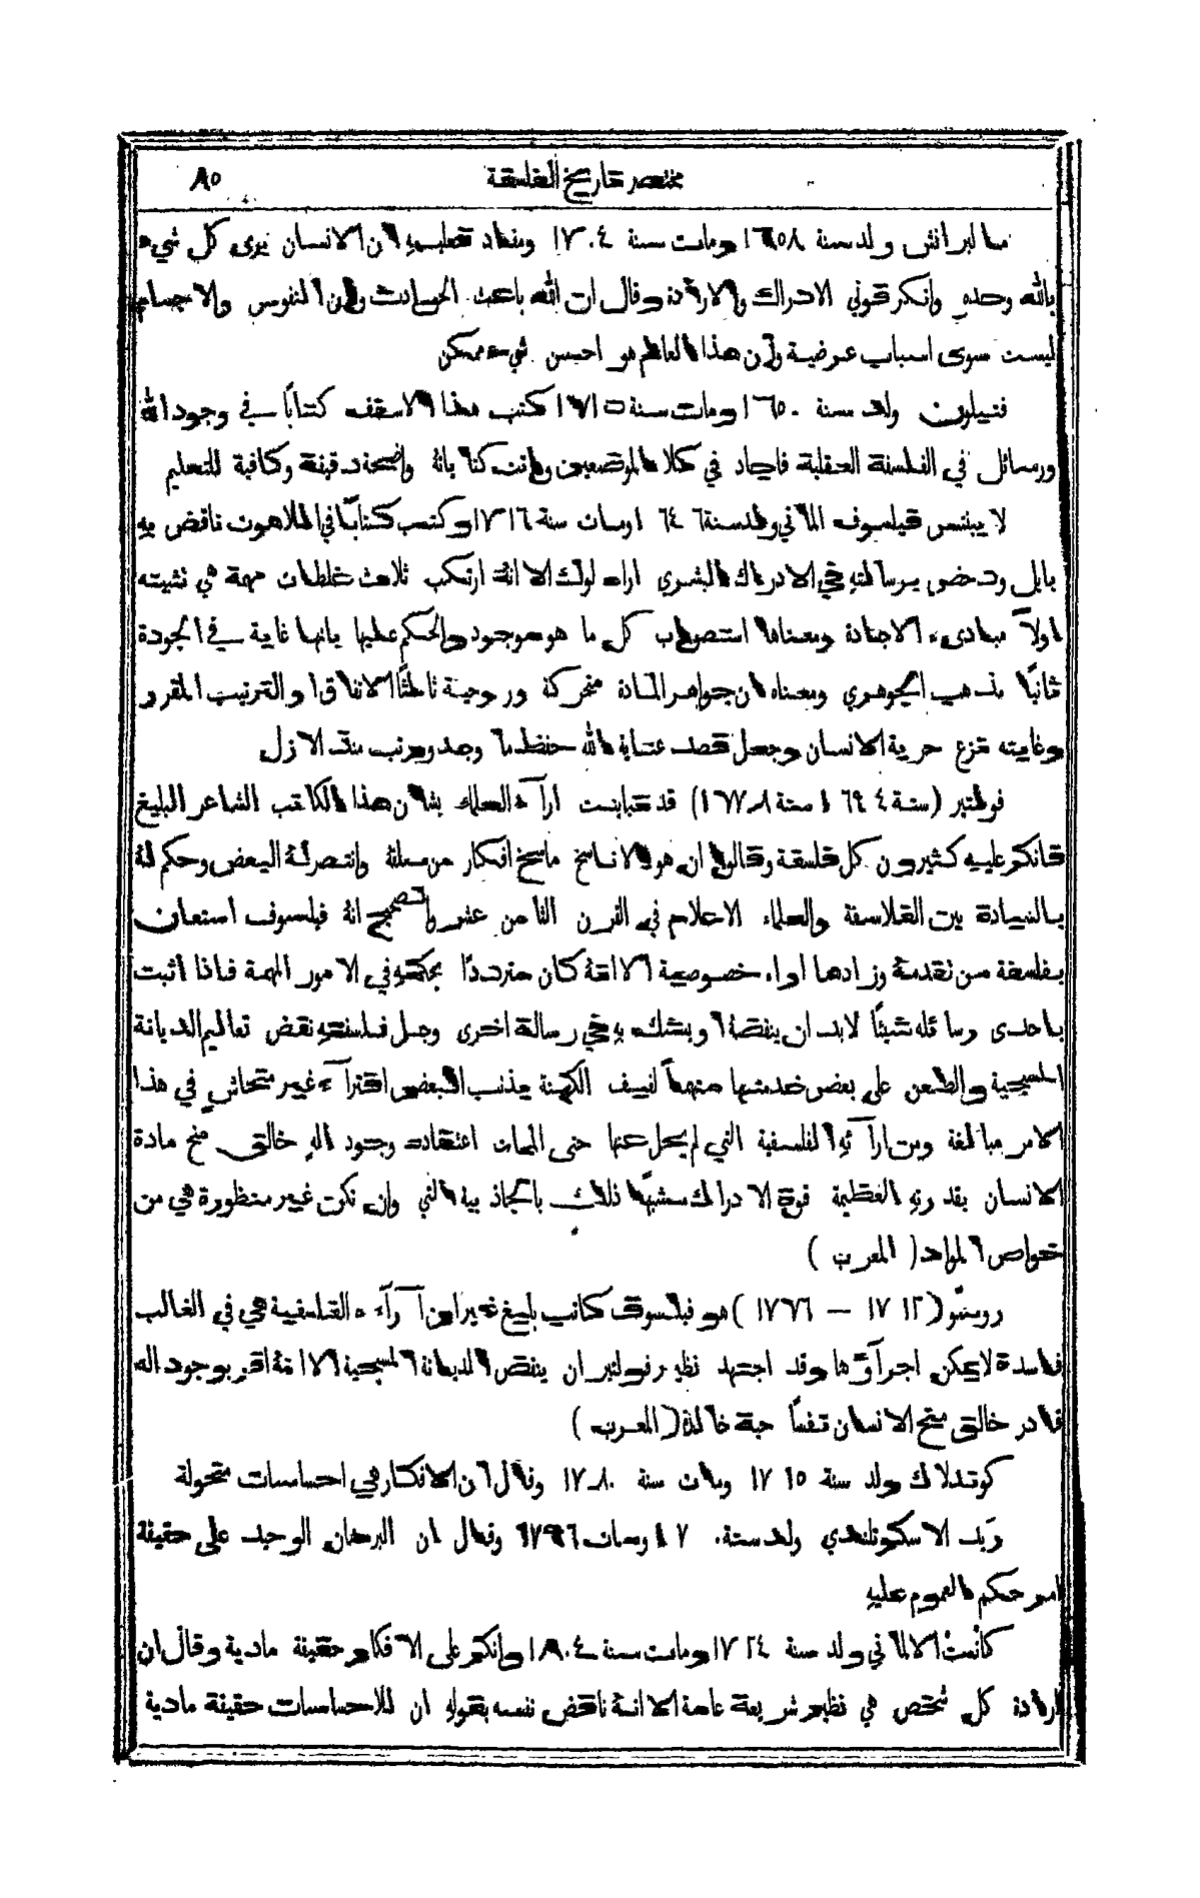 مختصر تاريخ الفلسفة ٨٥
مالبرانش ولد سنة ١٦٥٨ ومات سنة ١٧٠٤ ومفاد تعليمه ان الانسان يرى كل شيء
بالله وحده وانكر قوتي الادراك والارادة وقال ان الله باعث الحوادث وان النفوس والاجسام
ليست سوى اسباب عرضية وان هذا العالم هو احسن شيء ممكن
فنيلون ولد سنة ١٦٥٠ ومات سنة ١٧١٥ كتب هذا الاسقف كتابًا في وجود الله
ورسائل في الفلسفة العقلية فاجاد في كلا الموضعين وكانت كتاباته واضحة دقيقة وكافية للتعليم
لايبنتس فيلسوف الماني ولد سنة ١٦٤٦ ومات سنة ١٧١٦ وكتب كتابًا في اللاهوت ناقض به
بايل ودحض برسالته في الادراك البشري اراء لوك الا انه ارتكب ثلاث غلطات مهمة هي تثبيته
اولاً مبادىء الاجادة ومعناها استصواب كل ما هو موجود والحكم عليها بانها غاية في الجودة
ثانيًا مذهب الجوهري ومعناه ان جواهر المادة متحركة وروحية ثالثًا الاتفاق او الترتيب المقرر
وغايته نزع حرية الانسان وجعل قصد عناية الله حفظ ما وجد ورتب منذ الازل
فولتير (سنة ١٦٩٤ سنة ١٧٧٨) قد تباينت ارآء العلماء بشان هذا الكاتب الشاعر البليغ
فانكر عليه كثيرون كل فلسفة وقالوا ان هو الا ناسخ ماسخ افكار من سلفه وانتصر له البعض وحكم له
بالسيادة بين الفلاسفة والعلماء الاعلام في القرن الثامن عشر والصحيح انه فيلسوف استعان
بفلسفة من تقدمه وزادها اراء خصوصية الا انه كان مترددًا بحكمه في الامور المهمة فاذا اثبت
باحدى رسائله شيئًا لابد ان ينقضه او يشك به في رسالة اخرى وجل فلسفته نقض تعاليم الديانة
المسيحية والطعن على بعض خدمتها متهمًا لفيف الكهنة بذنب البعض افترآء غير متحاشٍ في هذا
الامر مبالغة ومن ارآئه الفلسفية التي لم يحل عنها حتى الممات اعتقاده وجود اله خالق منح مادة
الانسان بقدرته العظيمة قوة الادراك مشبهًا ذلك بالجاذبية التي وان تكن غير منظورة هي من
خواص المواد (المعرب)
روسّو (١٧١٢ – ١٧٧٦) هو فيلسوف كاتب بليغ غير ان آرآءه الفلسفية هي في الغالب
فاسدة لا يمكن اجرآؤها وقد اجتهد نظير فولتير ان ينقض الديانة المسيحية الا انه اقر بوجود اله
قادر خالق منح الانسان نفسًا حية خالدة (المعرب)
كوندلاك ولد سنة ١٧١٥ ومات سنة ١٧٨٠ وقال ان الافكار هي احساسات متحولة
رَيد الاسكوتلندي ولد سنة ١٧١٠ ومات ١٧٩٦ وقال ان البرهان الوحيد على حقيقة
امر حكم العموم عليه
كانْتْ الالماني ولد سنة ١٧٢٤ ومات سنة ١٨٠٤ وانكر على الافكار حقيقة مادية وقال ان
ارادة كل شخص هي نظير شريعة عامة الا انه ناقض نفسه بقوله ان للاحساسات حقيقة مادية